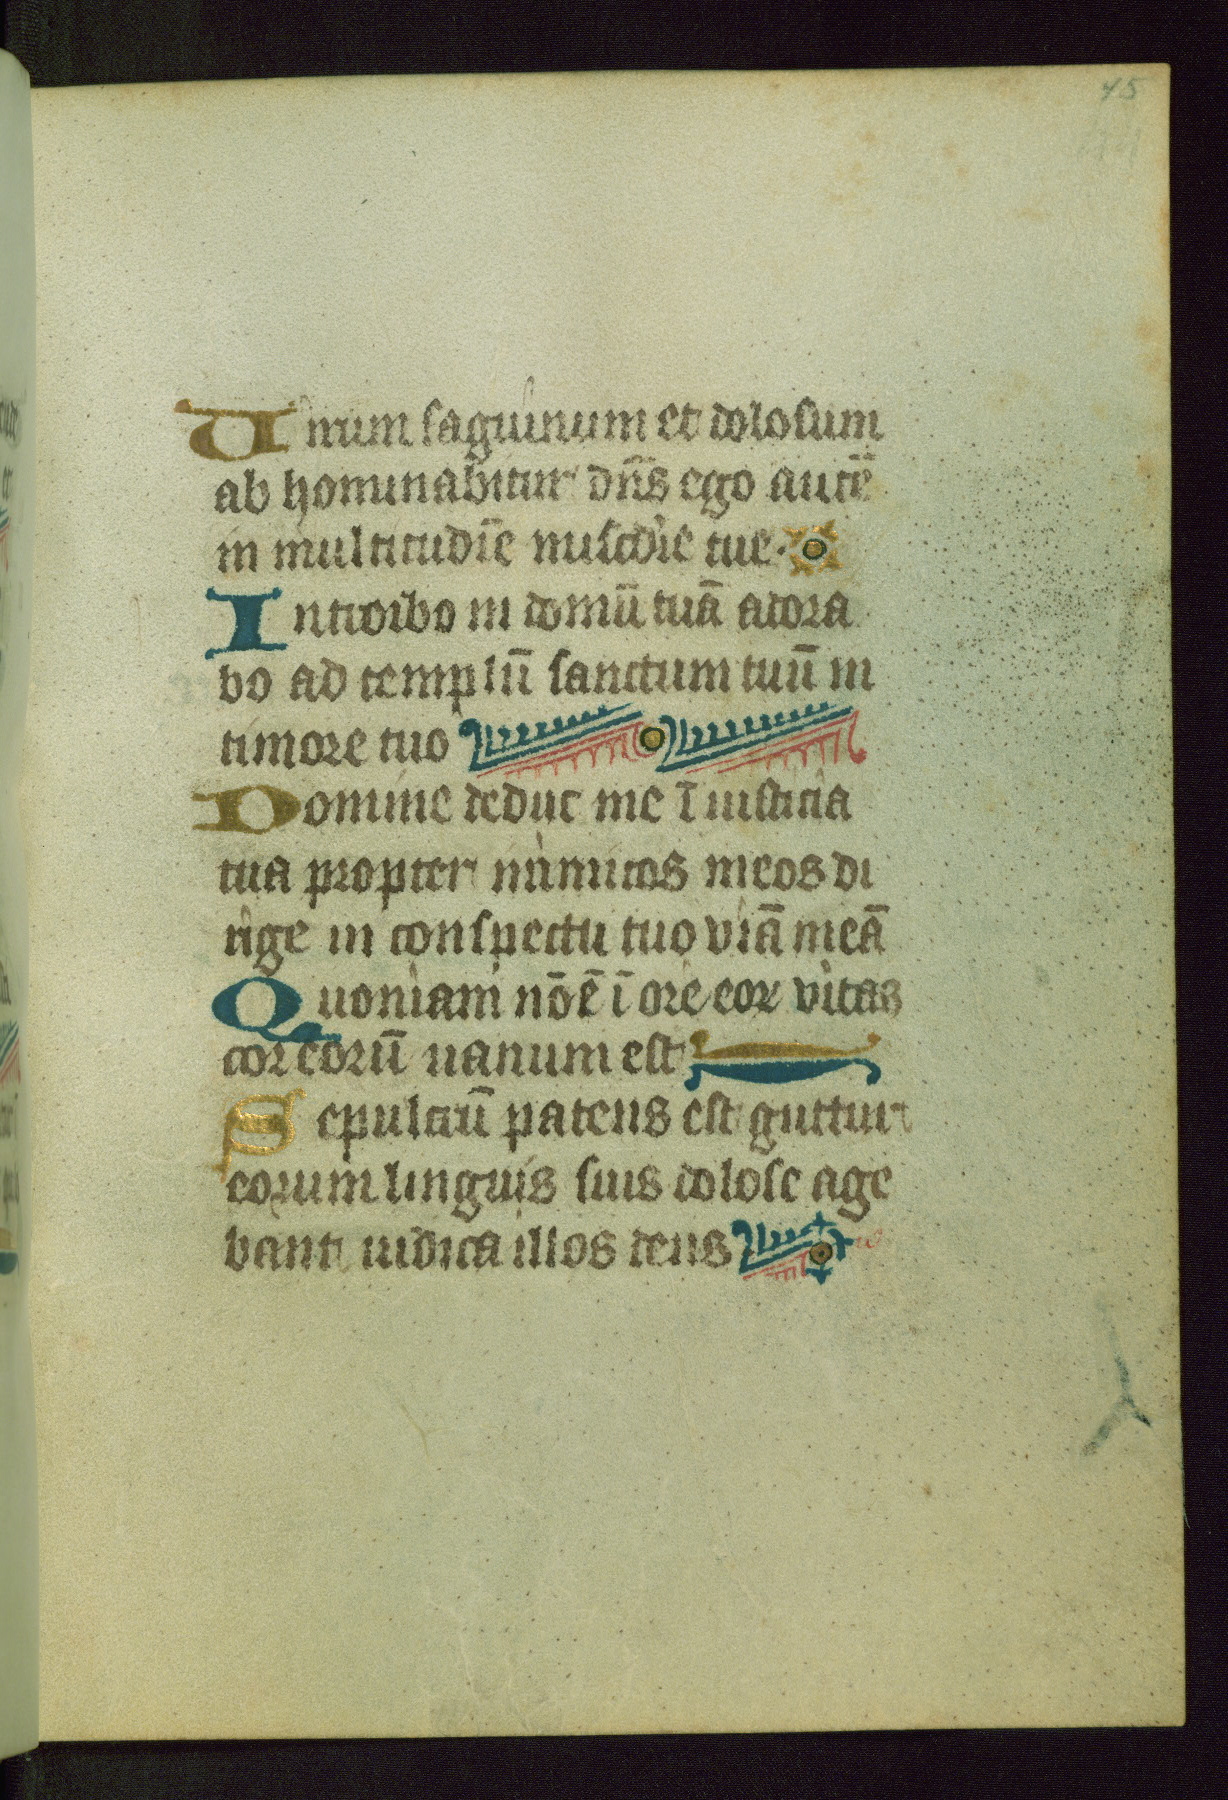 45
Uirum saguinum et dolosum
ab hominabitur dn̄s ego autē
in multitudīe miscdīe tue.
Introibo in domū tuā adora
bo ad templū sanctum tuū in
timore tuo
Domine deduc me ī iusticia
tua propter inimicos meos di
rige in conspectu tuo viā meā
Quoniam nō ē ī ore eor vitas
cor eorū uanum est
Sepulcrū patens est guttur
eorum linguis suis dolose age
bant iudica illos deus